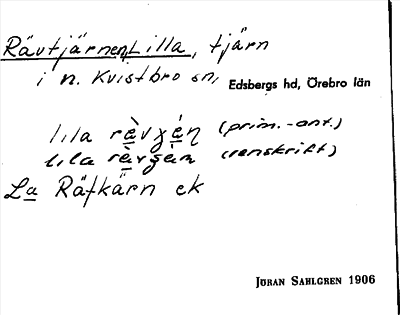 Rävtjärnen, Lilla, tjärn
i n. Kvistbro sn, Edsbergs hd, Örebro län
lila rävʒén (prim.-ant.)
lila rävʒen (renskrift)
La Räfkärn ek
JÖRAN SAHLGREN 1906